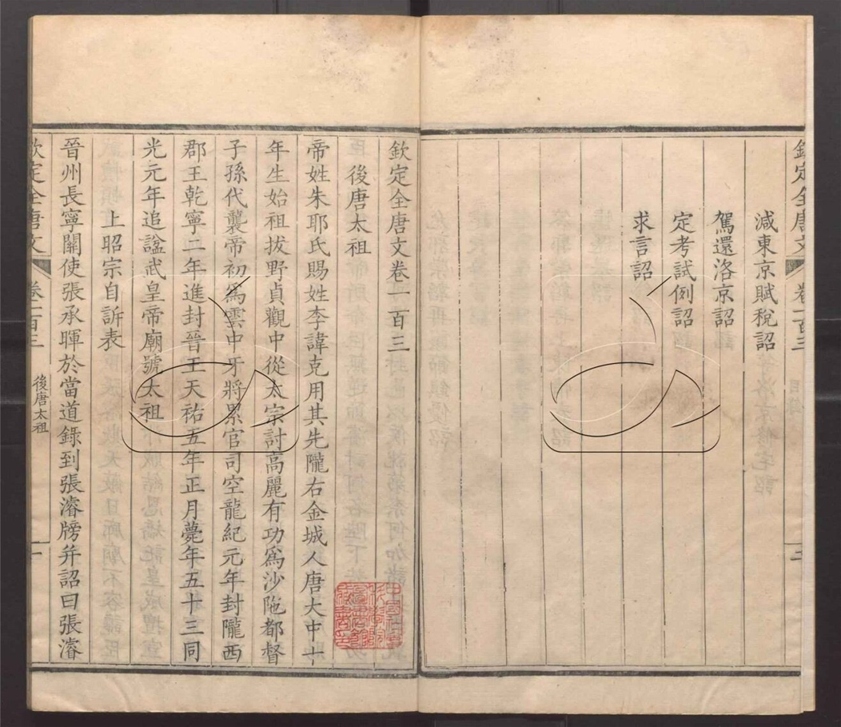 欽定全唐文 卷一百三
減東京賦稅詔
駕還洛京詔
定考試例詔
求言詔
欽定全唐文卷一百三
後唐太祖
帝姓朱耶氏賜姓李諱克用其先隴右金城人唐大中十
年生始祖拔野貞觀中從太宗討高麗有功爲沙陁都督
子孫代襲帝初爲雲中牙將累官司空龍紀元年封隴西
郡王乾寧二年進封晉王天祐五年正月薨年五十三同
光元年追諡武皇帝廟號太祖
上昭宗自訴表
晉州長寧關使張承暉於當道錄到張濬牓并詔曰張濬
欽定全唐文 卷一百三 後唐太祖 一